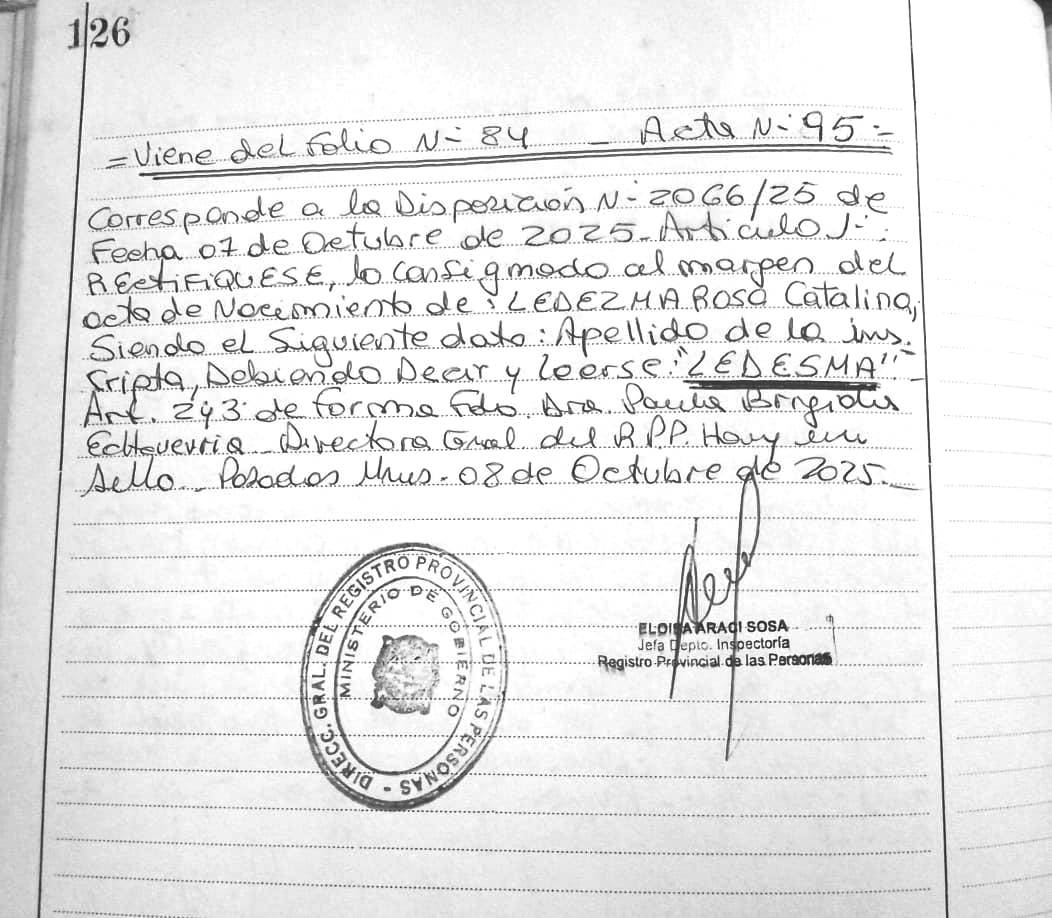 126
=Viene del folio N- 84 _ Acta N- 95-=
Corresponde a la Disposición N- 2066/25 de
Fecha 07 de Octubre de 2025_ Articulo 1-:
RECTIFIQUESE, lo consignado al margen del
acta de Nacimiento de: LEDEZMA Rosa Catalina,
Siendo el Siguiente dato: Apellido de la ins.
cripta, Debiendo Decir y leerse: "LEDESMA"_
Art. 2y3 de forma fdo. Dra. Paula Brigida
Echeverria_ Directora Gral del R.P.P. Hay un
Sello_ Posadas Mnes. 08 de Octubre de 2025._
DIRECC. GRAL. DEL REGISTRO PROVINCIAL DE LAS PERSONAS -
MINISTERIO DE GOBIERNO
ELOISA ARACI SOSA
Jefa Depto. Inspectoría
Registro Provincial de las Personas